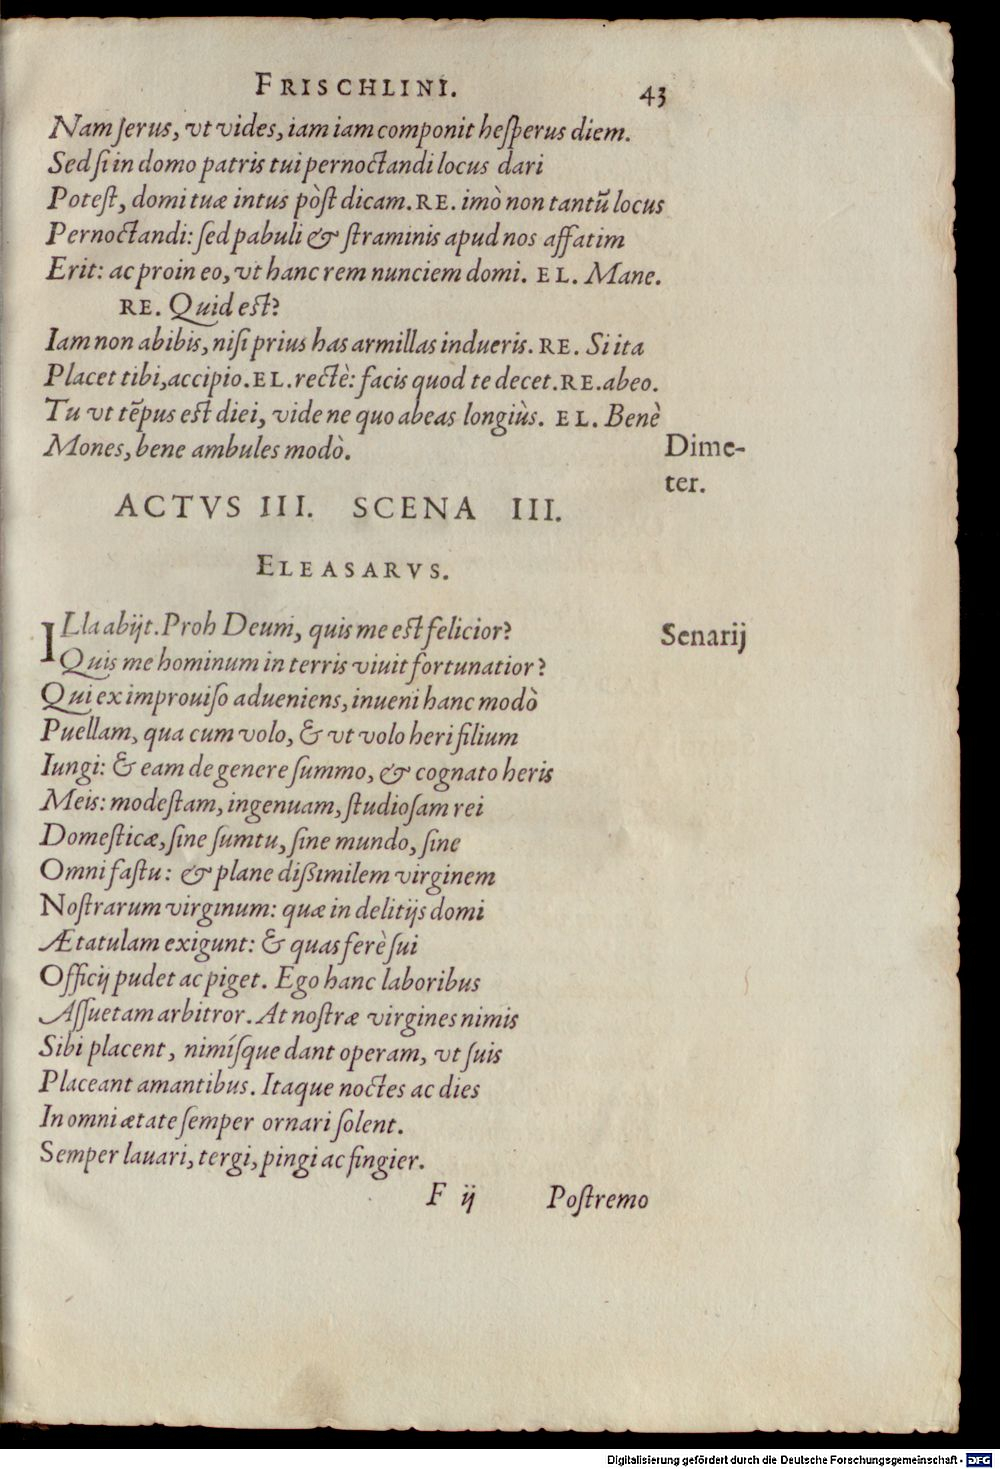 FRISCHLINI. 43
Nam ſerus, vt vides, iam iam componit heſperus diem.
Sed ſi in domo patris tui pernoctandi locus dari
Poteſt, domi tuæ intus pòſt dicam. RE. imò non tantũ locus
Pernoctandi: ſed pabuli & ſtraminis apud nos affatim
Erit: ac proin eo, vt hanc rem nunciem domi. EL. Mane.
RE. Quid eſt?
Iam non abibis, niſi prius has armillas indueris. RE. Si ita
Placet tibi, accipio. EL. rectè: facis quod te decet. RE. abeo.
Tu vt tẽpus eſt diei, vide ne quo abeas longiùs. EL. Benè
Mones, bene ambules modò.
Dime-
ter.
ACTVS III. SCENA III.
ELEASARVS.
ILla abijt. Proh Deum, quis me eſt felicior?
Senarij
Quis me hominum in terris viuit fortunatior?
Qui ex improuiſo adueniens, inueni hanc modò
Puellam, qua cum volo, & vt volo heri filium
Iungi: & eam de genere ſummo, & cognato heris
Meis: modeſtam, ingenuam, ſtudioſam rei
Domeſticæ, ſine ſumtu, ſine mundo, ſine
Omni faſtu: & plane diſsimilem virginem
Noſtrarum virginum: quæ in delitijs domi
Ætatulam exigunt: & quas ferè ſui
Officij pudet ac piget. Ego hanc laboribus
Aſſuetam arbitror. At noſtræ virgines nimis
Sibi placent, nimíſque dant operam, vt ſuis
Placeant amantibus. Itaque noctes ac dies
In omni ætate ſemper ornari ſolent.
Semper lauari, tergi, pingi ac fingier.
F ij Poſtremo
Digitalisierung gefördert durch die Deutsche Forschungsgemeinschaft - DFG